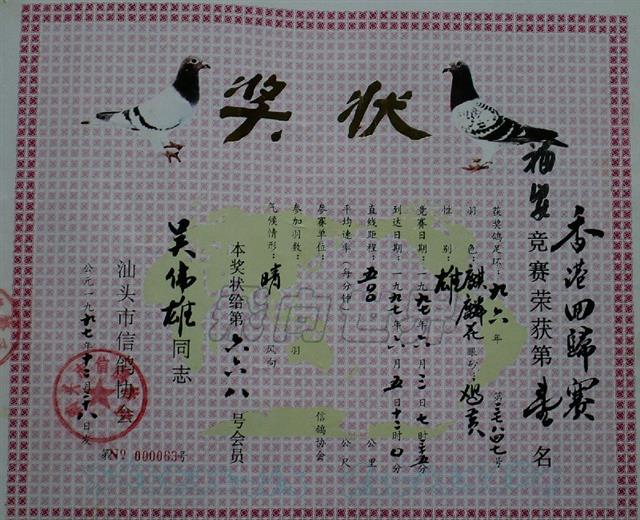 奖状
香港回歸赛
福安竞赛荣获第壹名
获奖鸽足环：九六年第三七八四七号
羽色：麒麟花 眼砂：鸡黄
性别：雄
竞赛日期：一九九七年六月三日七时三五分
到达日期：一九九七年六月五日十二时0分
直线距程：五00公里
平均速率（每分钟 公尺
参赛单位： 信鸽协会
参加羽数： 羽
气候情形：晴 风向
本奖状给第六六八号会员
吴伟雄同志
汕头市信鸽协会
公元一九九七年十二月二八日发
第No 000063号